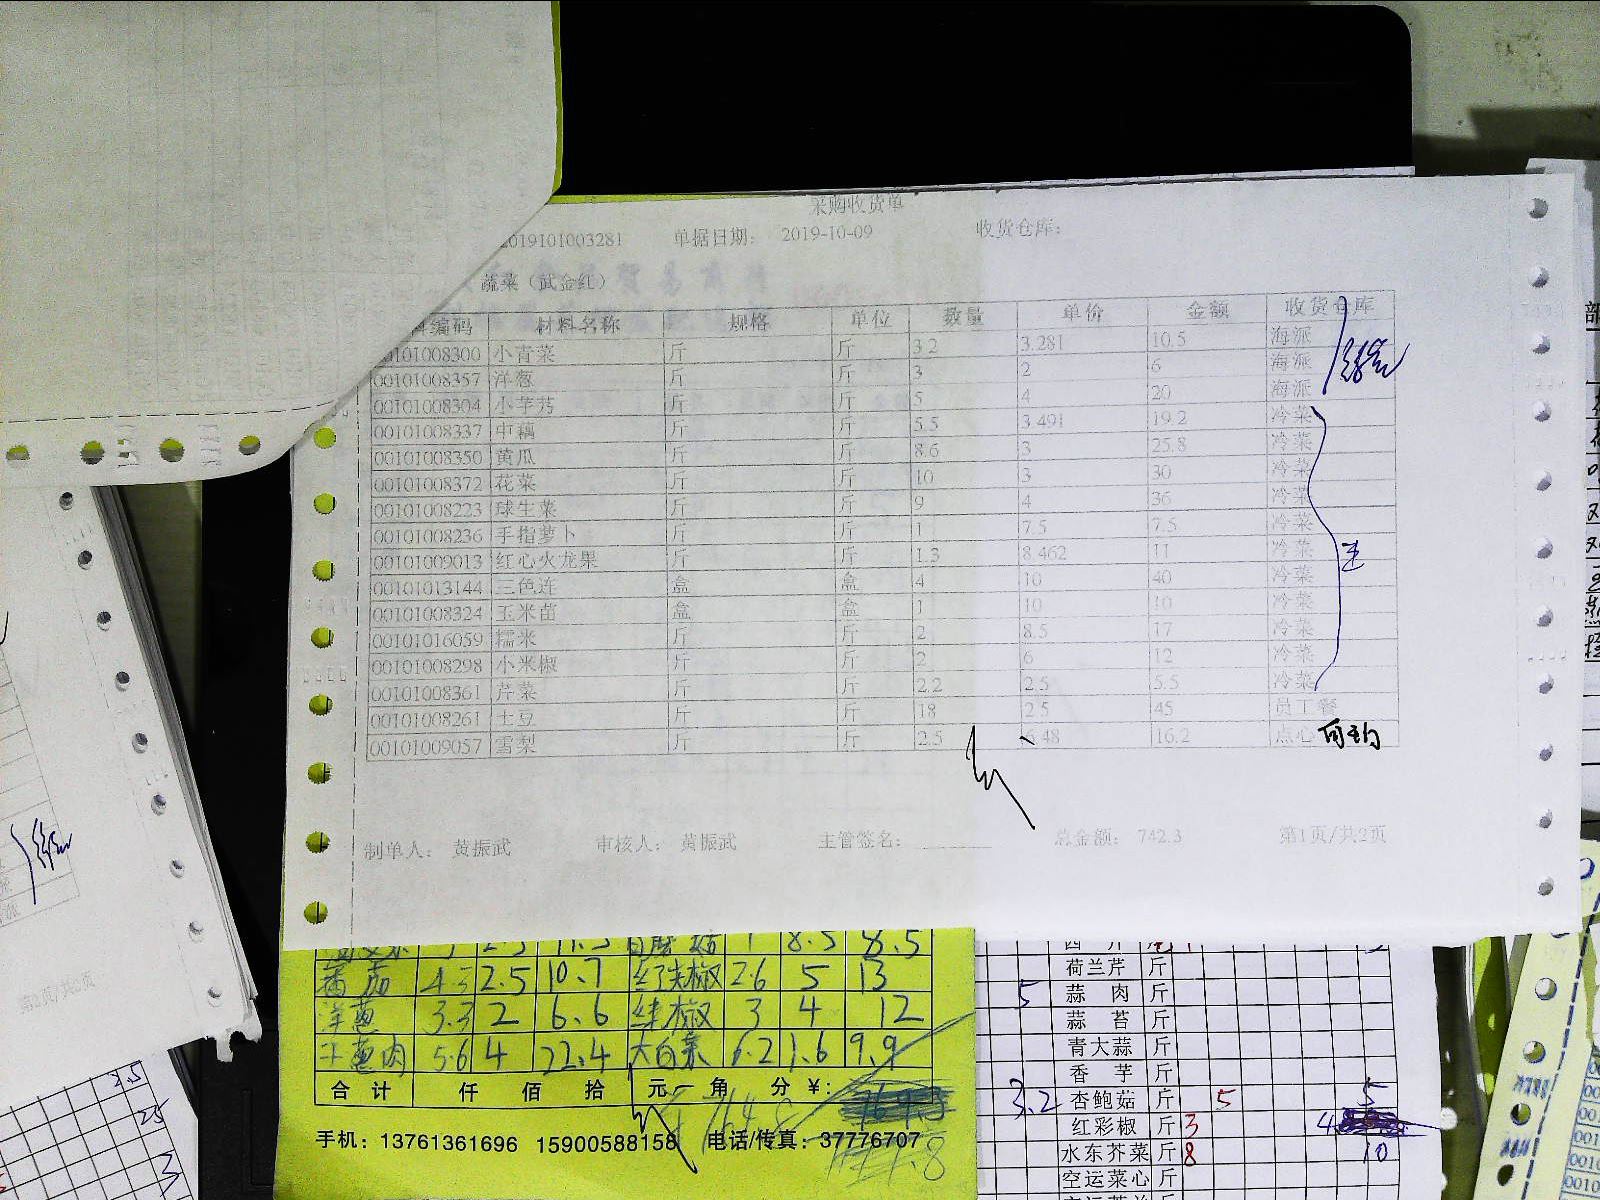 采购收货单
2019101003281 单据日期： 2019-10-09 收货仓库：
蔬菜（武金红）
编码 材料名称 规格 单位 数量 单价 金额 收货仓库
00101008300 小青菜 斤 斤 3.2 3.281 10.5 海派
00101008357 洋葱 斤 斤 3 2 6 海派
00101008304 小芋艿 斤 斤 5 4 20 海派
00101008337 中藕 斤 斤 5.5 3.491 19.2 冷菜
00101008350 黄瓜 斤 斤 8.6 3 25.8 冷菜
00101008372 花菜 斤 斤 10 3 30 冷菜
00101008223 球生菜 斤 斤 9 4 36 冷菜
00101008236 手指萝卜 斤 斤 1 7.5 7.5 冷菜
00101009013 红心火龙果 斤 斤 1.3 8.462 11 冷菜
00101013144 三色连 盒 盒 4 10 40 冷菜
00101008324 玉米苗 盒 盒 1 10 10 冷菜
00101016059 糯米 斤 斤 2 8.5 17 冷菜
00101008298 小米椒 斤 斤 2 6 12 冷菜
00101008361 芹菜 斤 斤 2.2 2.5 5.5 冷菜
00101008261 土豆 斤 斤 18 2.5 45 员工餐
00101009057 雪梨 斤 斤 2.5 6.48 16.2 点心
制单人： 黄振武 审核人： 黄振武 主管签名： 总金额： 742.3 第1页/共2页
第2页/共2页
8.5 8.5
番茄 4.3 2.5 10.7 红尖椒 2.6 5 13
洋葱 3.3 2 6.6 绿椒 3 4 12
干葱肉 5.6 4 22.4 大白菜 6.2 1.6 9.9
合计 仟 佰 拾 元 角 分 ¥：
手机：13761361696 15900588158 电话/传真：37776707
西芹
荷兰芹 斤
5 蒜肉 斤
蒜苔 斤
青大蒜 斤
香芋 斤
3.2 杏鲍菇 斤 5 5
红彩椒 斤 3 4
水东芥菜 斤 8 10
空运菜心 斤
2.5
25
3